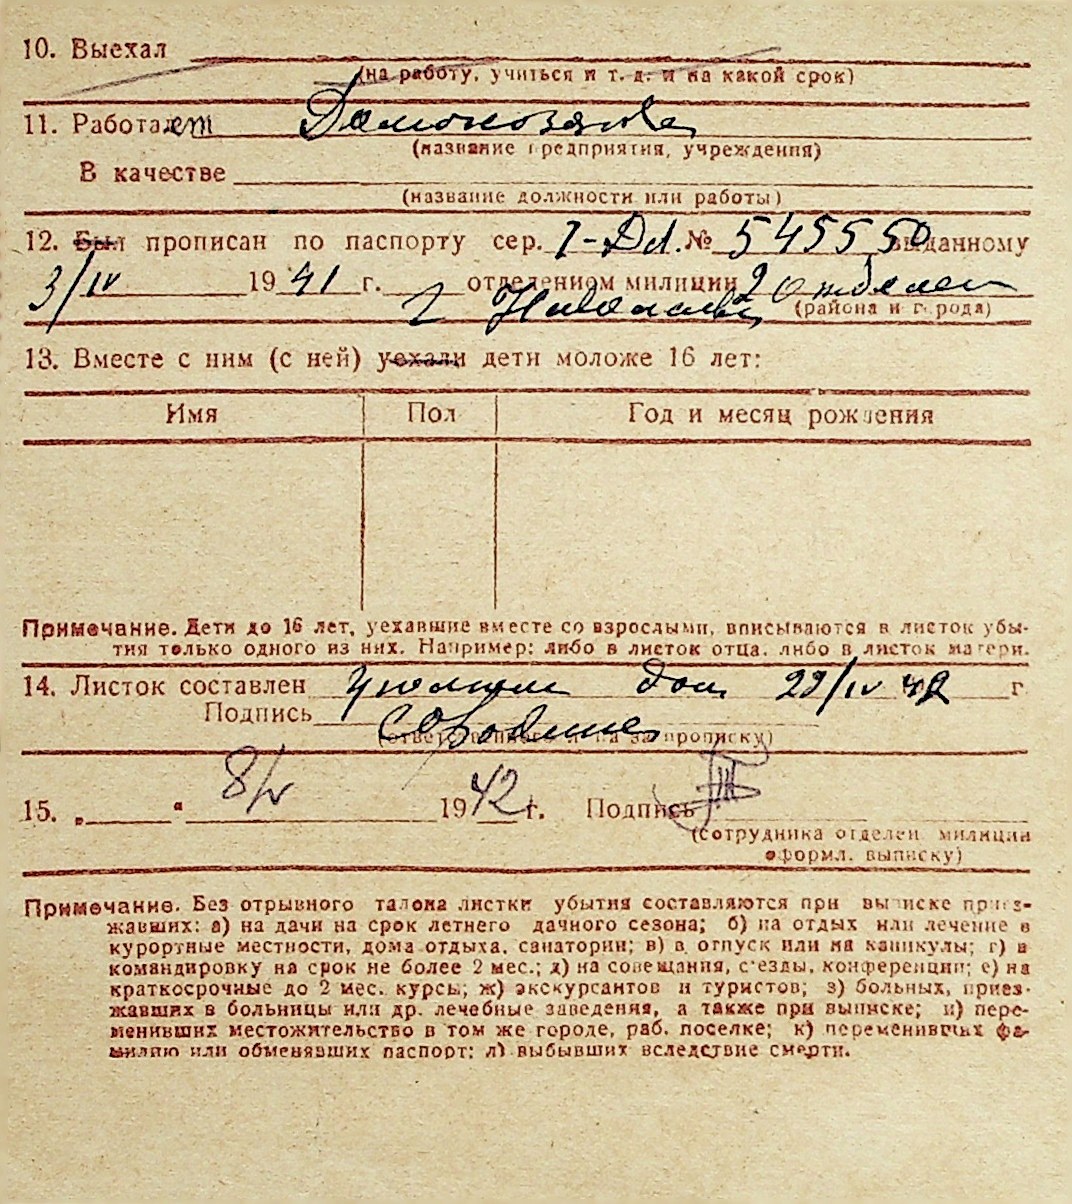 10. Выехал
(на работу, учиться и т. д. и на какой срок)
11. Работает Домохозяйка
(название предприятия, учреждения)
В качестве
(название должности или работы)
12. Был прописан по паспорту сер. № 545550 выданному
3/IV 1941 г. отделением милиции 2 Отделен
г Николаев (района и города)
13. Вместе с ним (с ней) уехали дети моложе 16 лет:
Имя Пол Год и месяц рождения
Примечание. Дети до 16 лет, уехавшие вместе со взрослыми, вписываются в листок убы-
тия только одного из них. Например: либо в листок отца, либо в листок матери.
14. Листок составлен 29/IV 42 г
Подпись
(ответственного л на за прописку)
15. „ “ 8/V 1942 г. Подпись
(сотрудника отделен. милиции
оформл. выписку)
Примечание. Без отрывного талона листки убытия составляются при выписке приез-
жавших: а) на дачи на срок летнего дачного сезона; б) на отдых или лечение в
курортные местности, дома отдыха, санатории; в) в отпуск или на каникулы; г) в
командировку на срок не более 2 мес.; д) на совещания, с'езды, конференции; е) на
краткосрочные до 2 мес. курсы; ж) экскурсантов и туристов; з) больных, приез-
жавших в больницы или др. лечебные заведения, а также при выписке; и) пере-
менивших местожительство в том же городе, раб. поселке; к) переменивших фа-
милию или обменявших паспорт; л) выбывших вследствие смерти.